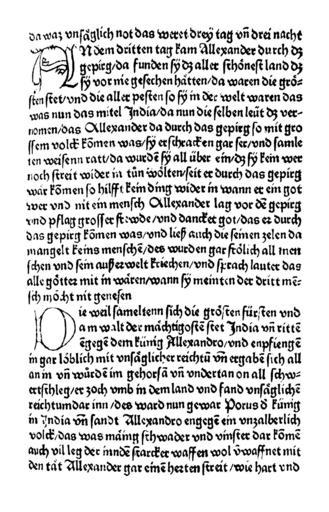 da waz vnsäglich not das weret drey tag vñ drei nacht
An dem dritten tag kam Allexander durch dz
gepirg/da funden sÿ dz aller schönest land dz
sÿ vor nie gesechen hätten/da waren die grö-
sten stet/vnd die aller pesten so sÿ in der welt waren das
was nun das mitel India/da nun die selben leüt dz ver-
nomen/das Allexander da durch das gepirg so mit gro
ssem volck kömen was/sÿ erschracken gar ser/vnd samle
ten weisenn ratt/da wurdẽ sÿ all über ein/dz sÿ kein wer
noch streit wider in tůn wölten/seit er durch das gepirg
wär kömen so hilfft kein ding wider in wann er ein got
wer vnd nit ein mensch Allexander lag vor dẽ gepirg
vnd pflag grosser frewde/vnd dancket got/das er durch
das gepirg kömen was/vnd ließ auch die seinen zelen da
mangelt keins menschẽ/des wurden gar frölich all men
schen vnd sein außerwelt kriechen/vnd sprach lauter das
alle götter mit in wären/wann sÿ meinten der dritt mẽ-
sch möcht nit genesen
Die weil sameltenn sich die grösten fürsten vnd
am walt der mächtigosten stet India vñ rittẽ
ẽgegẽ dem künig Allexandro/vnd enpfiengẽ
in gar löblich mit vnsäglicher reichtũ vñ ergabẽ sich all
an in vñ wurdẽ im gehorsã vñ vndertan on all schw-
ertschleg/er zoch vmb in dem land vnd fand vnsäglichẽ
reichtumdar inn/des ward nun gewar Porus d̾ künig
in India vñ sandt Allexandro engegẽ ein vnzalberlich
volck/das was mãnig schwader vnd vinster dar kömẽ
auch vil leg der inndẽ starcker waffen wol v̾waffnet mit
den tät Allexander gar einẽ herten streit/wie hart vnd